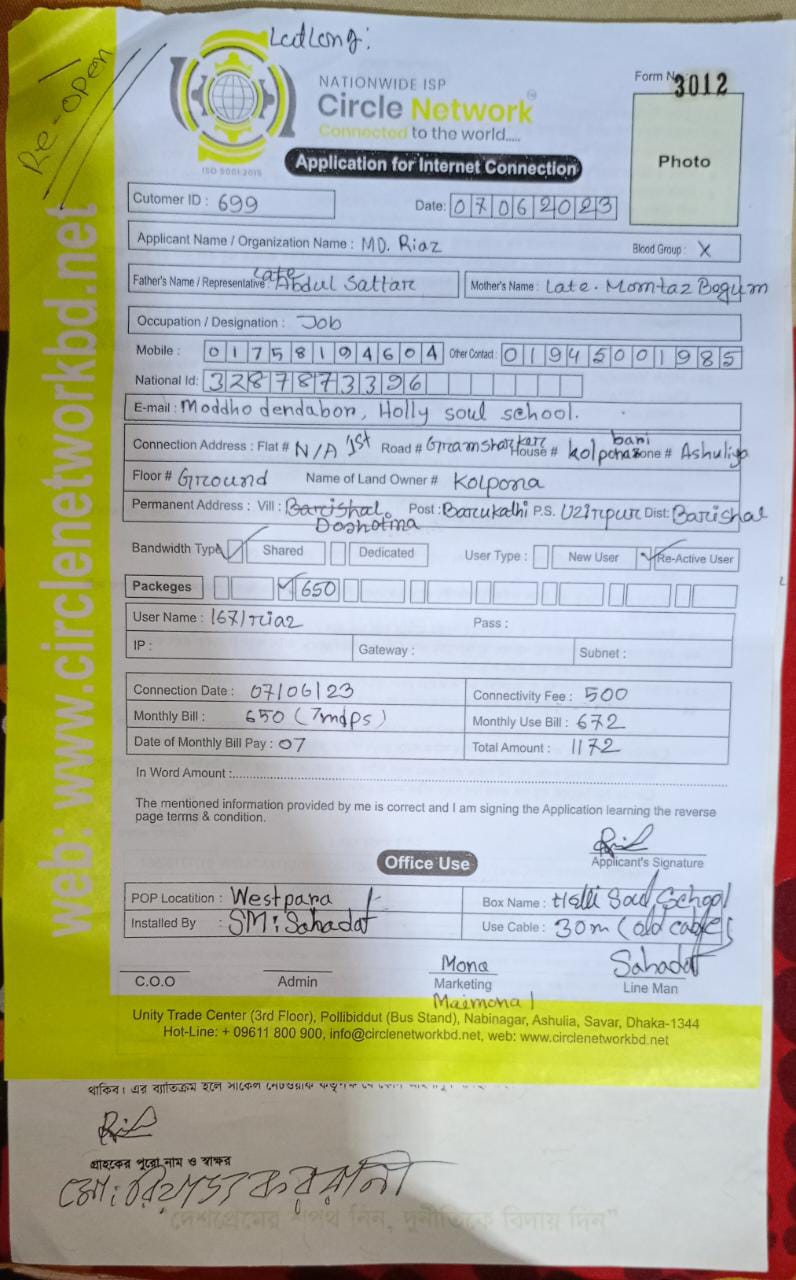 LatLong:
Re-open
NATIONWIDE ISP
Form No 3012
Circle Network
Connected to the world.....
ISO 9001:2015
Application for Internet Connection
Photo
Cutomer ID : 699 Date: 07062023
Applicant Name / Organization Name : MD. Riaz Blood Group : X
Father's Name / Representative : Late Abdul Sattar Mother's Name : Late. Momtaz Begum
Occupation / Designation : Job
Mobile : 01758194604 Other Contact : 01945001985
National Id: 3287873396
E-mail : Moddho dendabor, Holly soul school.
Connection Address : Flat # N/A 1st Road # House # kolpona bari Zone # Ashuliya
Floor # Ground Name of Land Owner # Kolpona
Permanent Address : Vill : Barishal. Doshotina Post : Barukathi P.S. Uzirpur Dist: Barishal
Bandwidth Type ✓ Shared Dedicated User Type : New User ✓ Re-Active User
Packeges ✓ 650
User Name : 1671riaz Pass :
IP : Gateway : Subnet :
Connection Date : 07/06/23 Connectivity Fee : 500
Monthly Bill : 650 (7mdps) Monthly Use Bill : 672
Date of Monthly Bill Pay : 07 Total Amount : 1172
In Word Amount :
The mentioned information provided by me is correct and I am signing the Application learning the reverse
page terms & condition.
Applicant's Signature
Office Use
POP Locatition : Westpara Box Name : Holli Soul School
Installed By : SM: Sahadat Use Cable : 30m (old cable)
Mona Sahadat
C.O.O Admin Marketing Line Man
Maimona
Unity Trade Center (3rd Floor), Pollibiddut (Bus Stand), Nabinagar, Ashulia, Savar, Dhaka-1344
Hot-Line: + 09611 800 900, info@circlenetworkbd.net, web: www.circlenetworkbd.net
web: www.circlenetworkbd.net
থাকিব। এর ব্যতিক্রম হলে সার্কেল
গ্রাহকের পুরো নাম ও স্বাক্ষর
মো:
"দেশপ্রেমের শপথ নিন, দুর্নীতিকে বিদায় দিন"